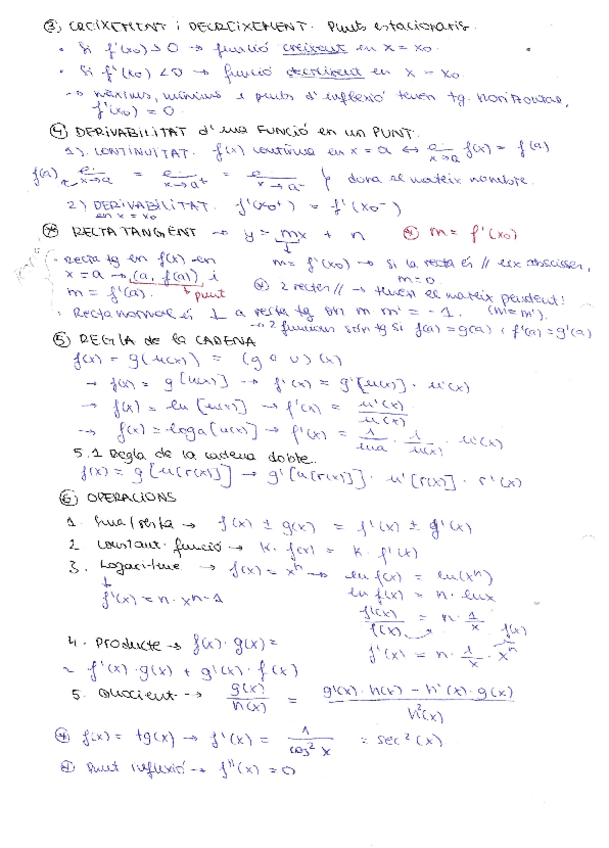 ③ CREIXEMENT i DECREIXEMENT. Punts estacionaris.
• Si f'(x₀) > 0 → funció creixent en x = x₀.
• Si f'(x₀) < 0 → funció decreixent en x = x₀
→ màxims, mínims i punts d'inflexió tenen tg. horitzontal,
f'(x₀) = 0.
④ DERIVABILITAT d'una FUNCIÓ en un PUNT.
1). CONTINUITAT. f(x) contínua en x = a ↔ lim x→a f(x) = f(a)
f(a) lim x→a = lim x→a⁺ = lim x→a⁻ } dona el mateix nombre.
2) DERIVABILITAT. f'(x₀⁺) = f'(x₀⁻)
en x = x₀
RECTA TANGENT → y = mx + n m = f'(x₀)
• Recta tg en f(x) en m = f'(x₀) → si la recta és // eix abscisses,
x = a → (a, f(a)) i m = 0
m = f'(a). punt 2 rectes // → tenen el mateix pendent!
• Recta normal és ⊥ a recta tg on m m' = -1. (m = m').
→ 2 funcions són tg si f(a) = g(a) i f'(a) = g'(a)
⑤ REGLA de la CADENA
f(x) = g(u(x)) = (g o u)(x)
→ f(x) = g[u(x)] → f'(x) = g'[u(x)] · u'(x)
→ f(x) = ln[u(x)] → f'(x) = u'(x)/u(x)
→ f(x) = loga[u(x)] → f'(x) = 1/lna · 1/u(x) · u'(x)
5.1 Regla de la cadena doble.
f(x) = g[u(r(x))] → g'[u(r(x))] · u'[r(x)] · r'(x)
⑥ OPERACIONS
1. Suma/resta → f(x) ± g(x) = f'(x) ± g'(x)
2. constant · funció → K. f(x) = K. f'(x)
3. Logaritme → f(x) = xⁿ → ln f(x) = ln(xⁿ)
↓ ln f(x) = n · lnx
f'(x) = n · xⁿ⁻¹ f'(x)/f(x) = n · 1/x
f(x)
4. Producte → f(x) · g(x) = f'(x) = n · 1/x · xⁿ
= f'(x) · g(x) + g'(x) · f(x)
5. Quocient → g(x)/h(x) = g'(x) · h(x) - h'(x) · g(x) / h²(x)
f(x) = tg(x) → f'(x) = 1/cos² x = sec²(x)
Punt inflexió → f''(x) = 0